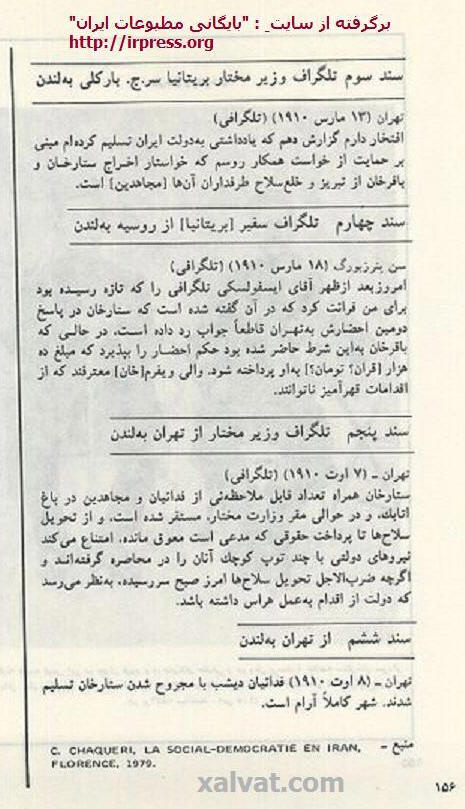 برگرفته از سایت : "بایگانی مطبوعات ایران"
http://irpress.org
سند سوم تلگراف وزیر مختار بریتانیا سر.ج. بارکلی به‌لندن
تهران (۱۳ مارس ۱۹۱۰) (تلگرافی)
افتخار دارم گزارش دهم که یادداشتی به‌دولت ایران تسلیم کرده‌ام مبنی
بر حمایت از خواست همکار روسم که خواستار اخراج ستارخان و
باقرخان از تبریز و خلع‌سلاح طرفداران آن‌ها [مجاهدین] است.
سند چهارم تلگراف سفیر [بریتانیا] از روسیه به‌لندن
سن پترزبورگ (۱۸ مارس ۱۹۱۰) (تلگرافی)
امروزبعد ازظهر آقای ایسفولسکی تلگرافی را که تازه رسیده بود
برای من قرائت کرد که در آن گفته شده است که ستارخان در پاسخ
دومین احضارش به‌تهران قاطعاً جواب رد داده است. در حالی که
باقرخان به‌این شرط حاضر شده بود حکم احضار را بپذیرد که مبلغ ده
هزار [قران؟ تومان؟] به‌او پرداخته شود. والی و یفرم[خان] معترفند که از
اقدامات قهرآمیز ناتوانند.
سند پنجم تلگراف وزیر مختار از تهران به‌لندن
تهران ـ (۷ اوت ۱۹۱۰) (تلگرافی)
ستارخان همراه تعداد قابل ملاحظه‌ئی از فدائیان و مجاهدین در باغ
اتابك، و در حوالی مقر وزارت مختار، مستقر شده است، و از تحویل
سلاح‌ها تا پرداخت حقوقی که مدعی است معوق مانده، امتناع می‌کند
نیروهای دولتی با چند توپ کوچك آنان را در محاصره گرفته‌انـد و
اگرچه ضرب‌الاجل تحویل سلاح‌ها امرز صبح سررسیده، به‌نظر می‌رسد
که دولت از اقدام به‌عمل هراس داشته باشد.
سند ششم از تهران به‌لندن
تهران ـ (۸ اوت ۱۹۱۰) فدائیان دیشب با مجروح شدن ستارخان تسلیم
شدند. شهر کاملاً آرام است.
منبع –
C. CHAQUERI, LA SOCIAL-DEMOCRATIE EN IRAN,
FLORENCE, 1979.
xalvat.com
۱۵۶